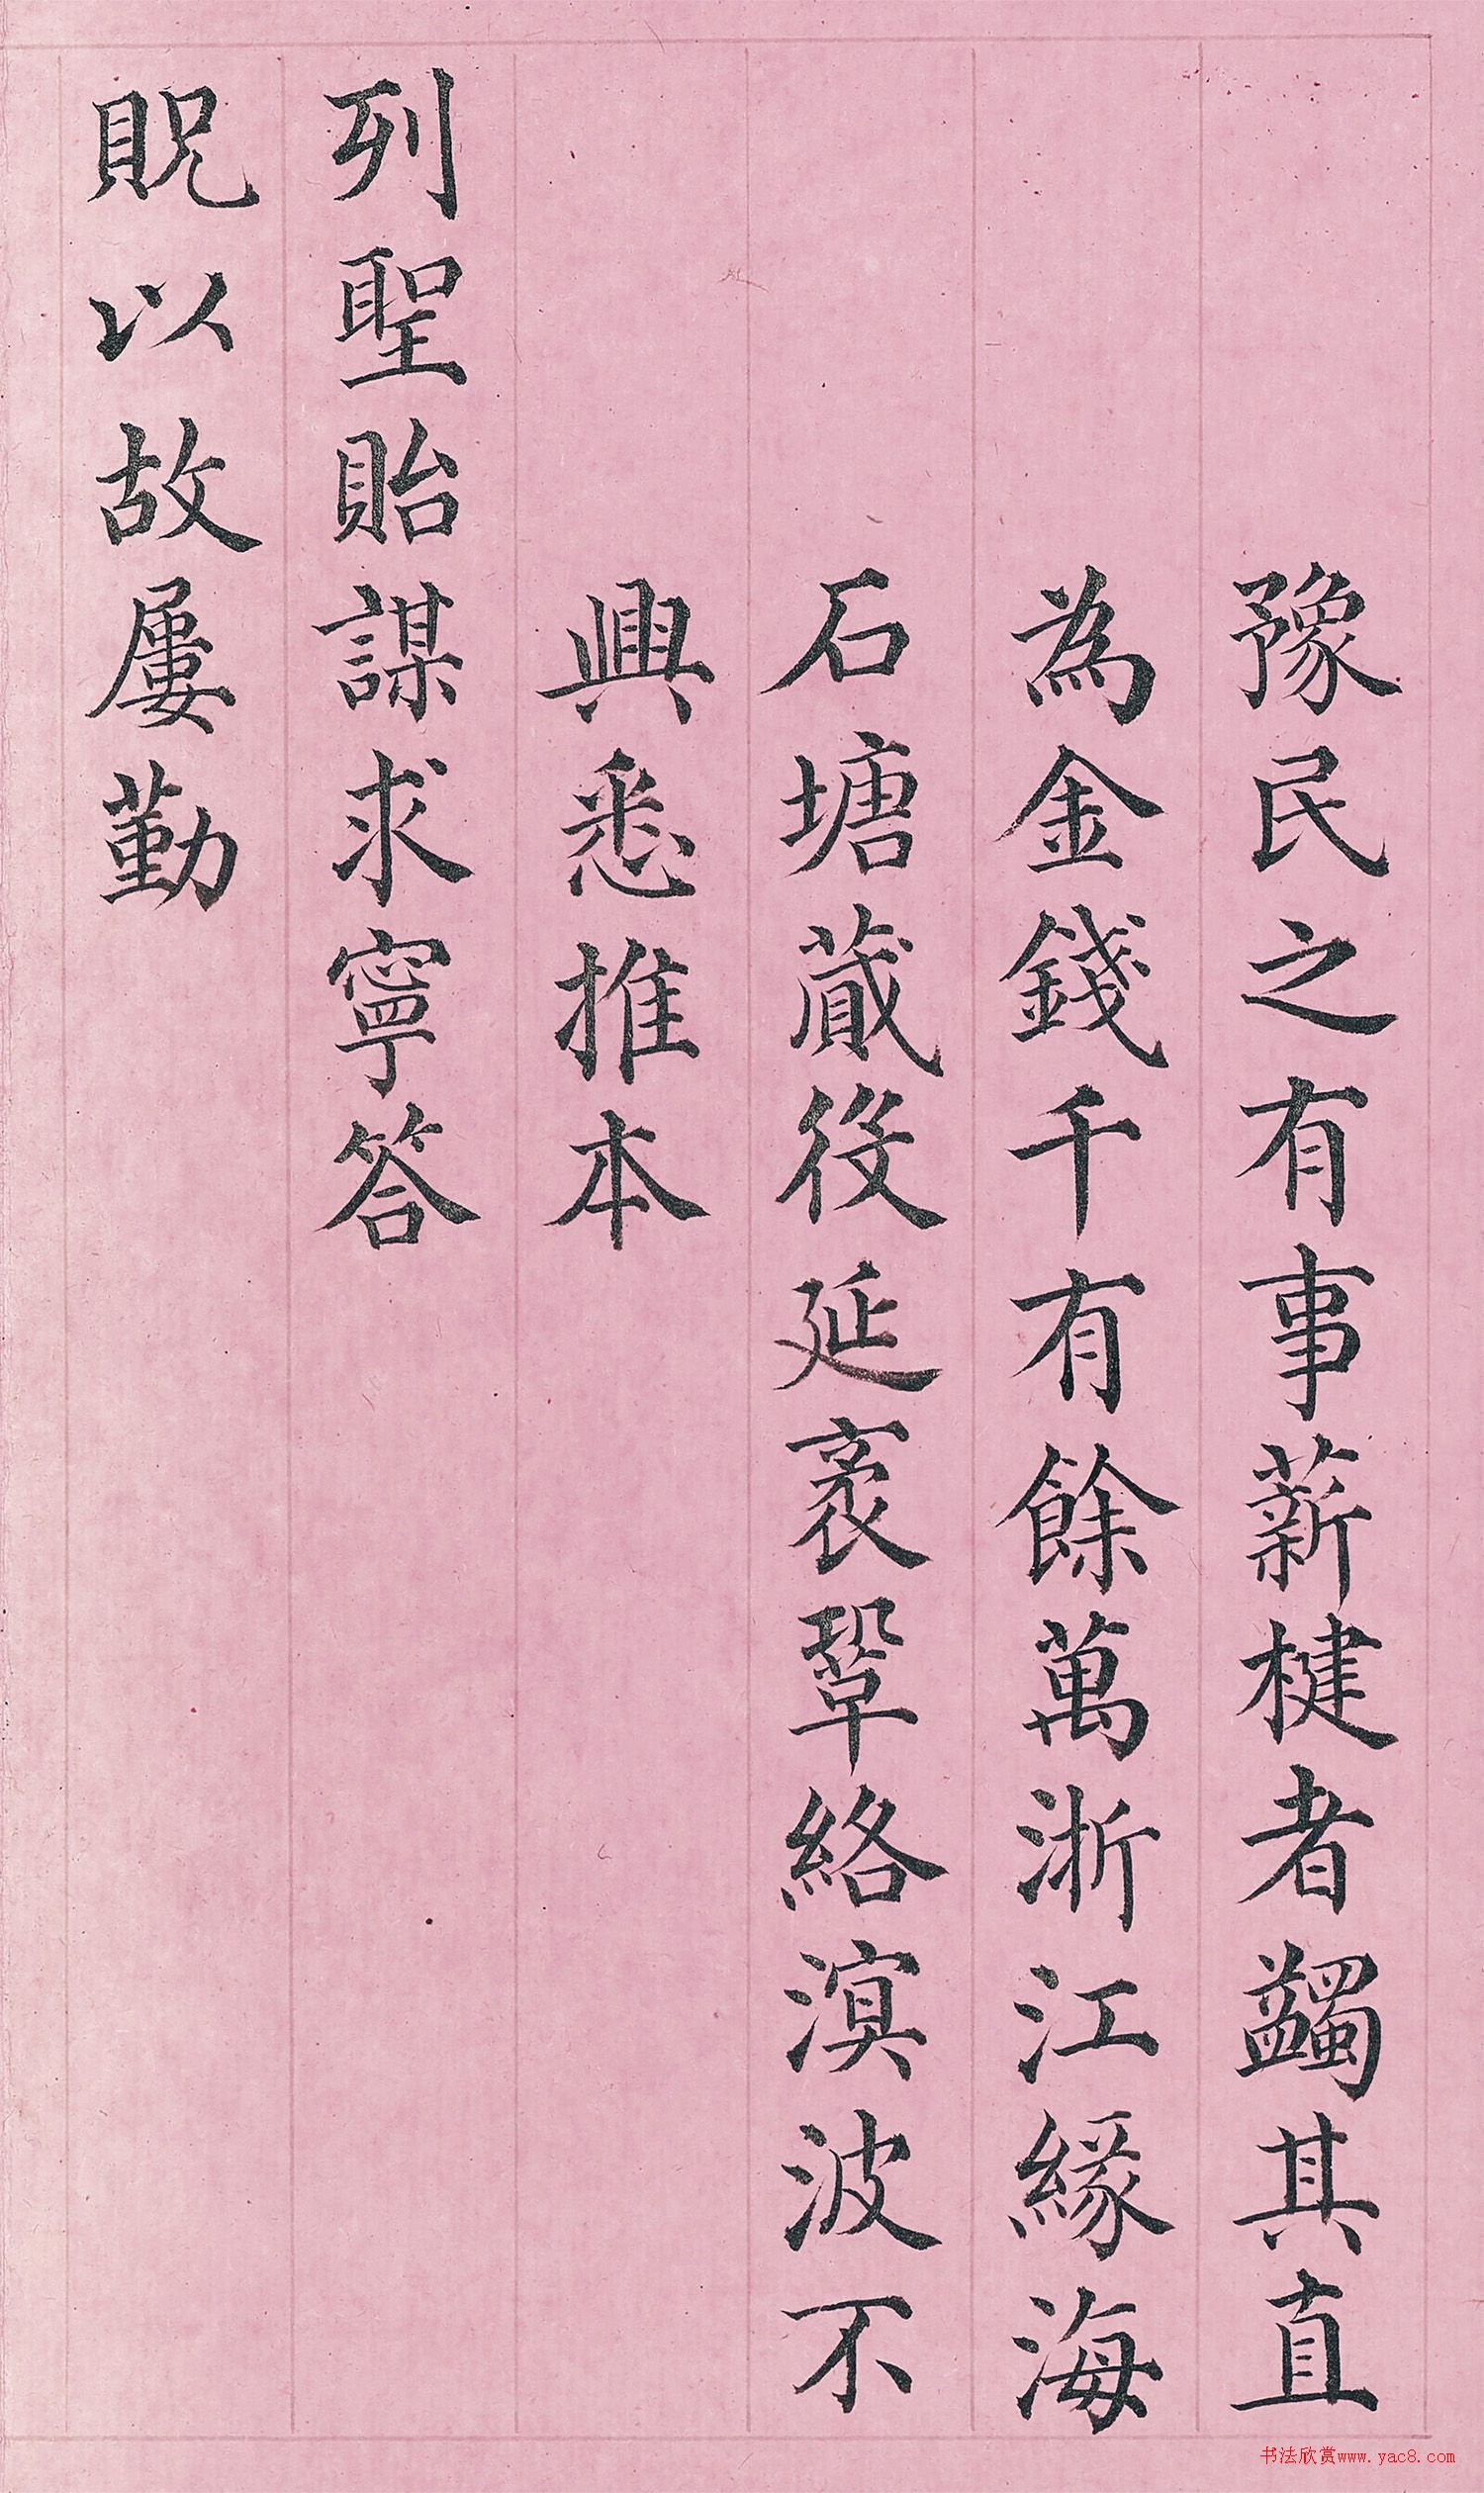 豫民之有事薪楗者蠲其直
為金錢千有餘萬浙江緣海
石塘蕆役延袤鞏絡溟波不
興悉推本
列聖貽謀求寧答
貺以故屢勤
书法欣赏www.yac8.com